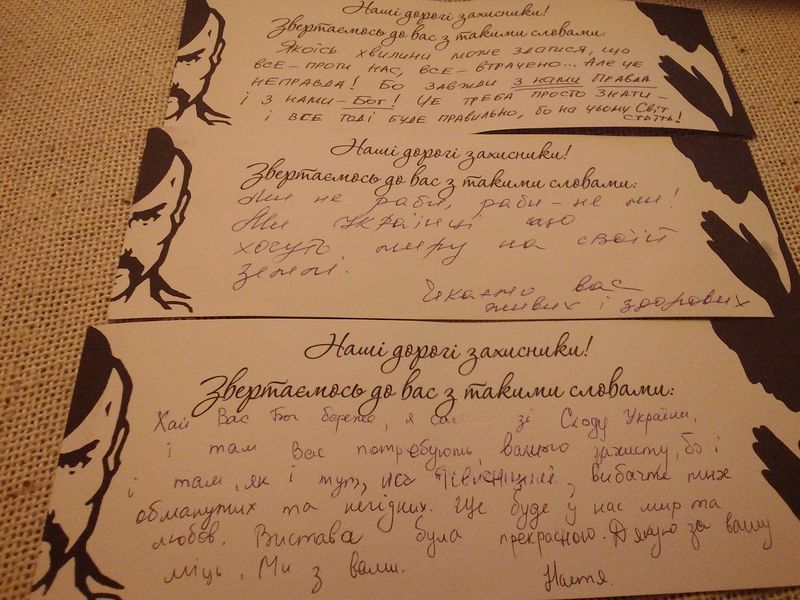 Наші дорогі захисники!
Звертаємось до вас з такими словами:
Якоїсь хвилини може здатися, що
все – проти нас, все – втрачено... Але це
неправда! Бо завжди з нами Правда
і з нами – Бог! Це треба просто знати –
і все тоді буде правильно, бо на цьому Світ
стоїть!
Наші дорогі захисники!
Звертаємось до вас з такими словами:
Ми не раби, раби – не ми!
Ми Українці що
хочуть миру на своїй
землі.
Чекаємо вас
живих і здорових
Наші дорогі захисники!
Звертаємось до вас з такими словами:
Хай Вас Бог береже, я сама зі Сходу України,
і там Вас потребують вашого захисту, бо і
і там, як і тут, на, вибачте
обманутих та негідних. Ще буде у нас мир та
любов. Вистава була прекрасною. Дякую за вашу
міць. Ми з вами.
Настя.